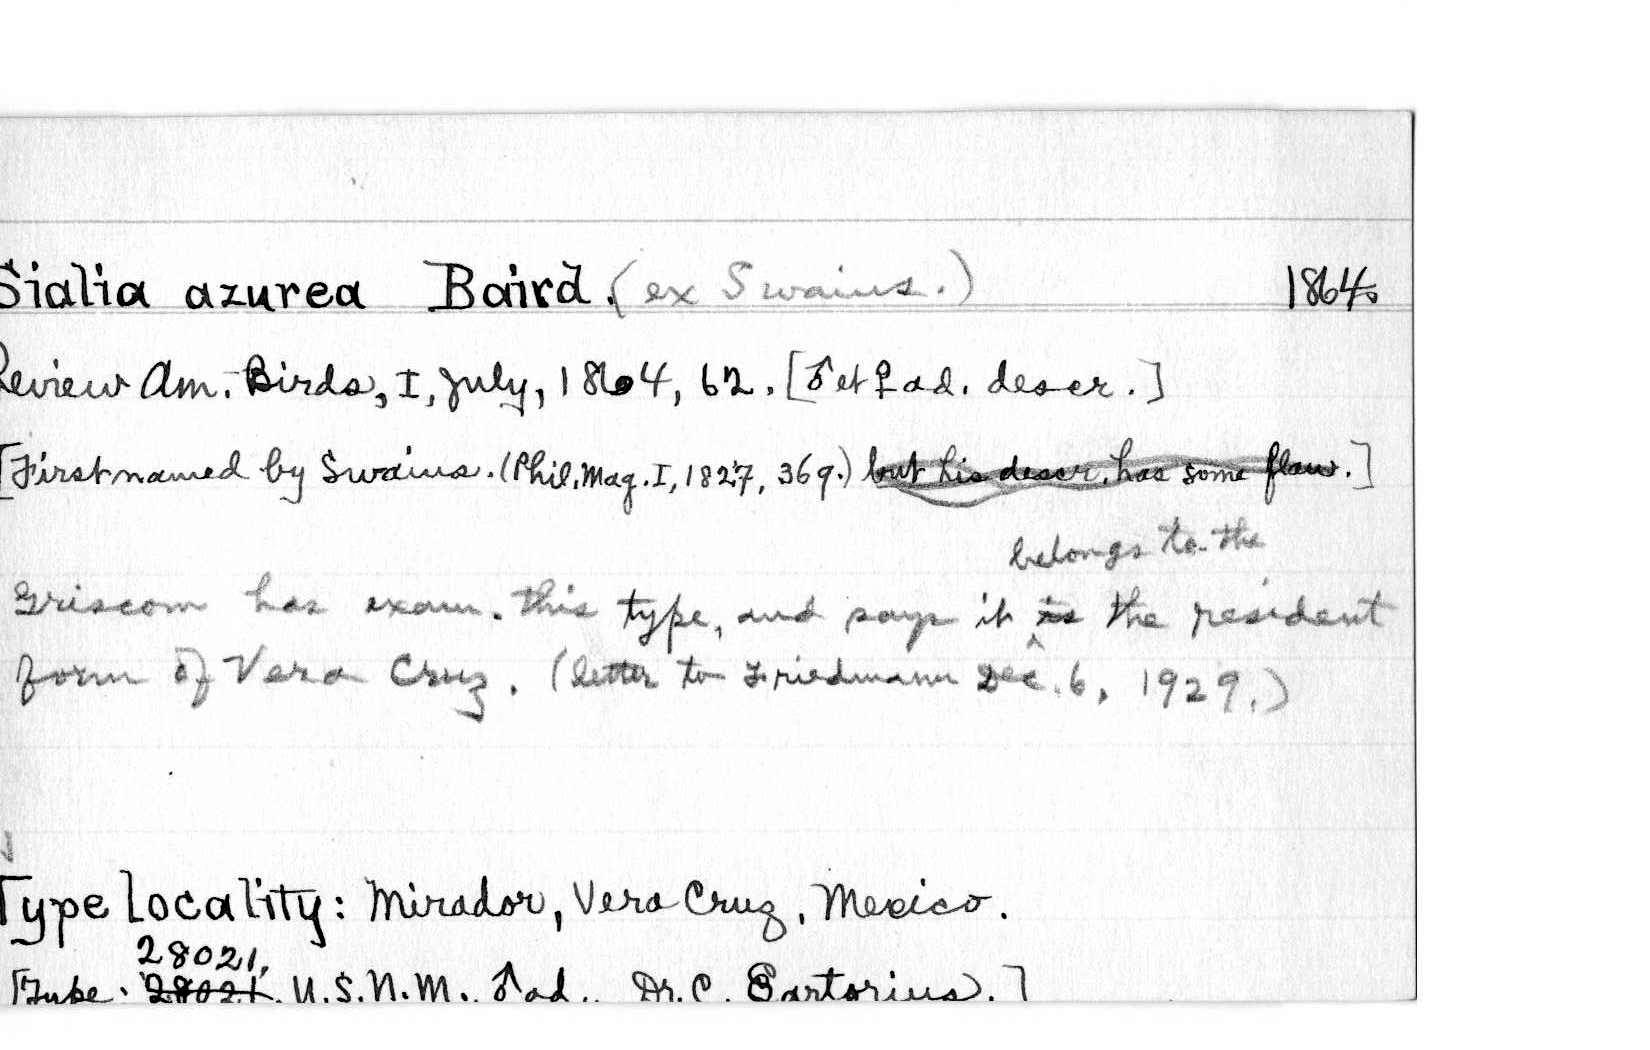 Sialia azurea Baird. (ex Swains.) 1864.
Review Am. Birds, I, July, 1864, 62. [♂ et ♀ ad. descr.]
[First named by Swains. (Phil. Mag. I, 1827, 369.) but his descr. has some flaw.]
belongs to the
Griscom has exam. this type, and says it is the resident
form of Vera Cruz. (letter to Friedmann Dec. 6, 1929.)
Type locality: Mirador, Vera Cruz, Mexico.
28021,
[Type. 28021, U.S.N.M., ♂ ad., Dr. C. Sartorius.]